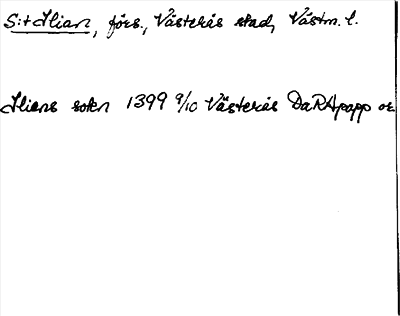 S:t Ilian, förs., Västerås stad, Västm. l.
Iliens sokn 1399 9/10 Västerås DaRApapp or.